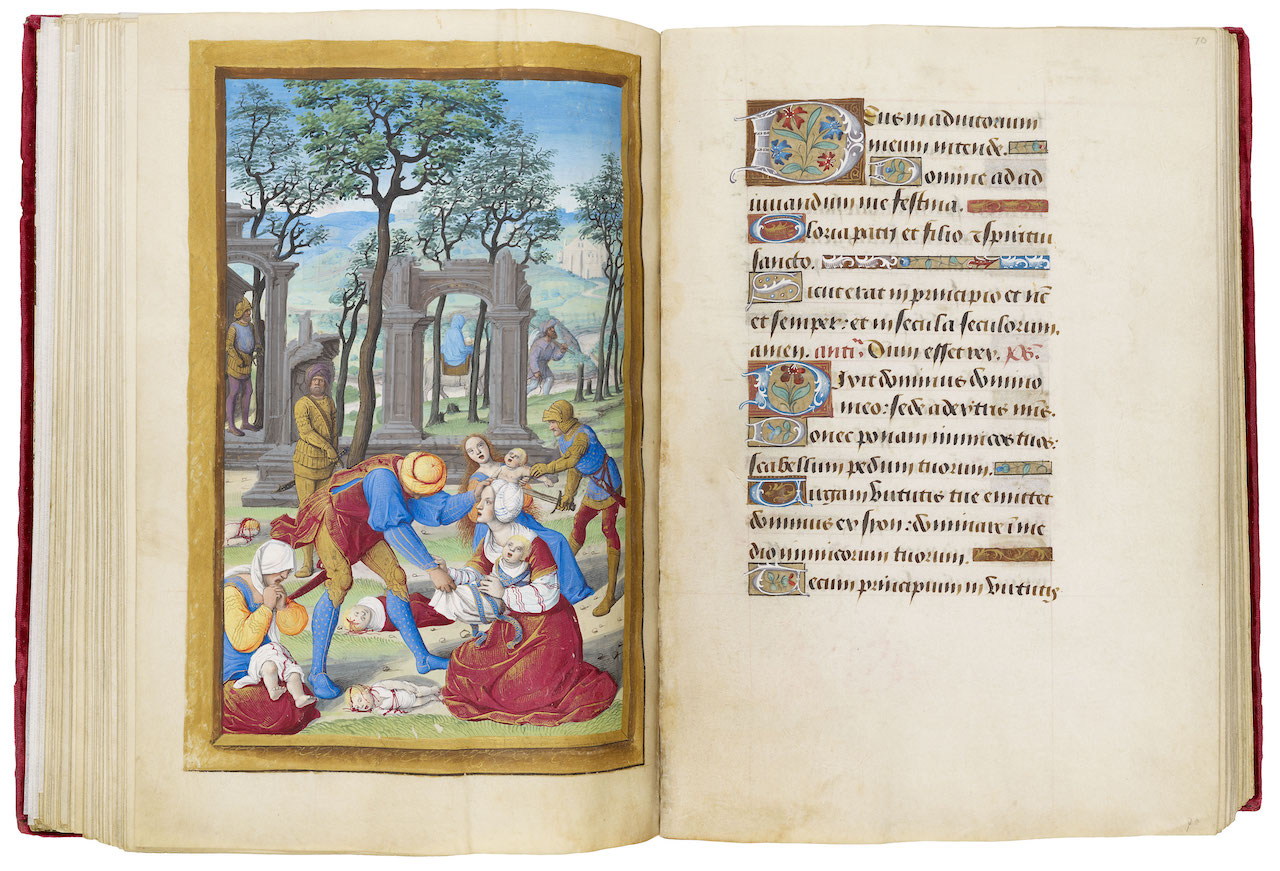 70
Deus in adiutorium
meum intende.
Domine ad ad
iuuandum me festina.
Gloria patri et filio ⁊ spiritui
sancto.
Sicut erat in principio et nūc
et semper: et in secula seculorum.
amen. anti᷑. Dum esset rex. p̄s.
Dixit dominus domino
meo: sede a dextris meis.
Donec ponam inimicos tuos:
scabellum pedum tuorum.
Uirgam virtutis tue emittet
dominus ex syon: dominare ī me
dio inimicorum tuorum.
Tecum principium in virtutis